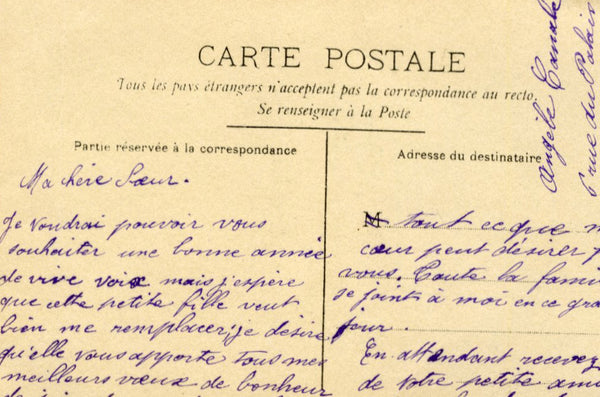 CARTE POSTALE
Tous les pays étrangers n'acceptent pas la correspondance au recto.
Se renseigner à la Poste
Partie réservée à la correspondance
Ma chère Sœur.
Je voudrai pouvoir vous
souhaiter une bonne année
de vive voix mais j'espère
que cette petite fille veut
bien me remplacer, je désire
qu'elle vous apporte tous mes
meilleurs vœux de bonheur
Adresse du destinataire
M tout ce que
cœur peut désirer
vous. Toute la
se joint à moi en ce
jour.
En attendant recevez
de votre petite
Angèle
rue du Palais